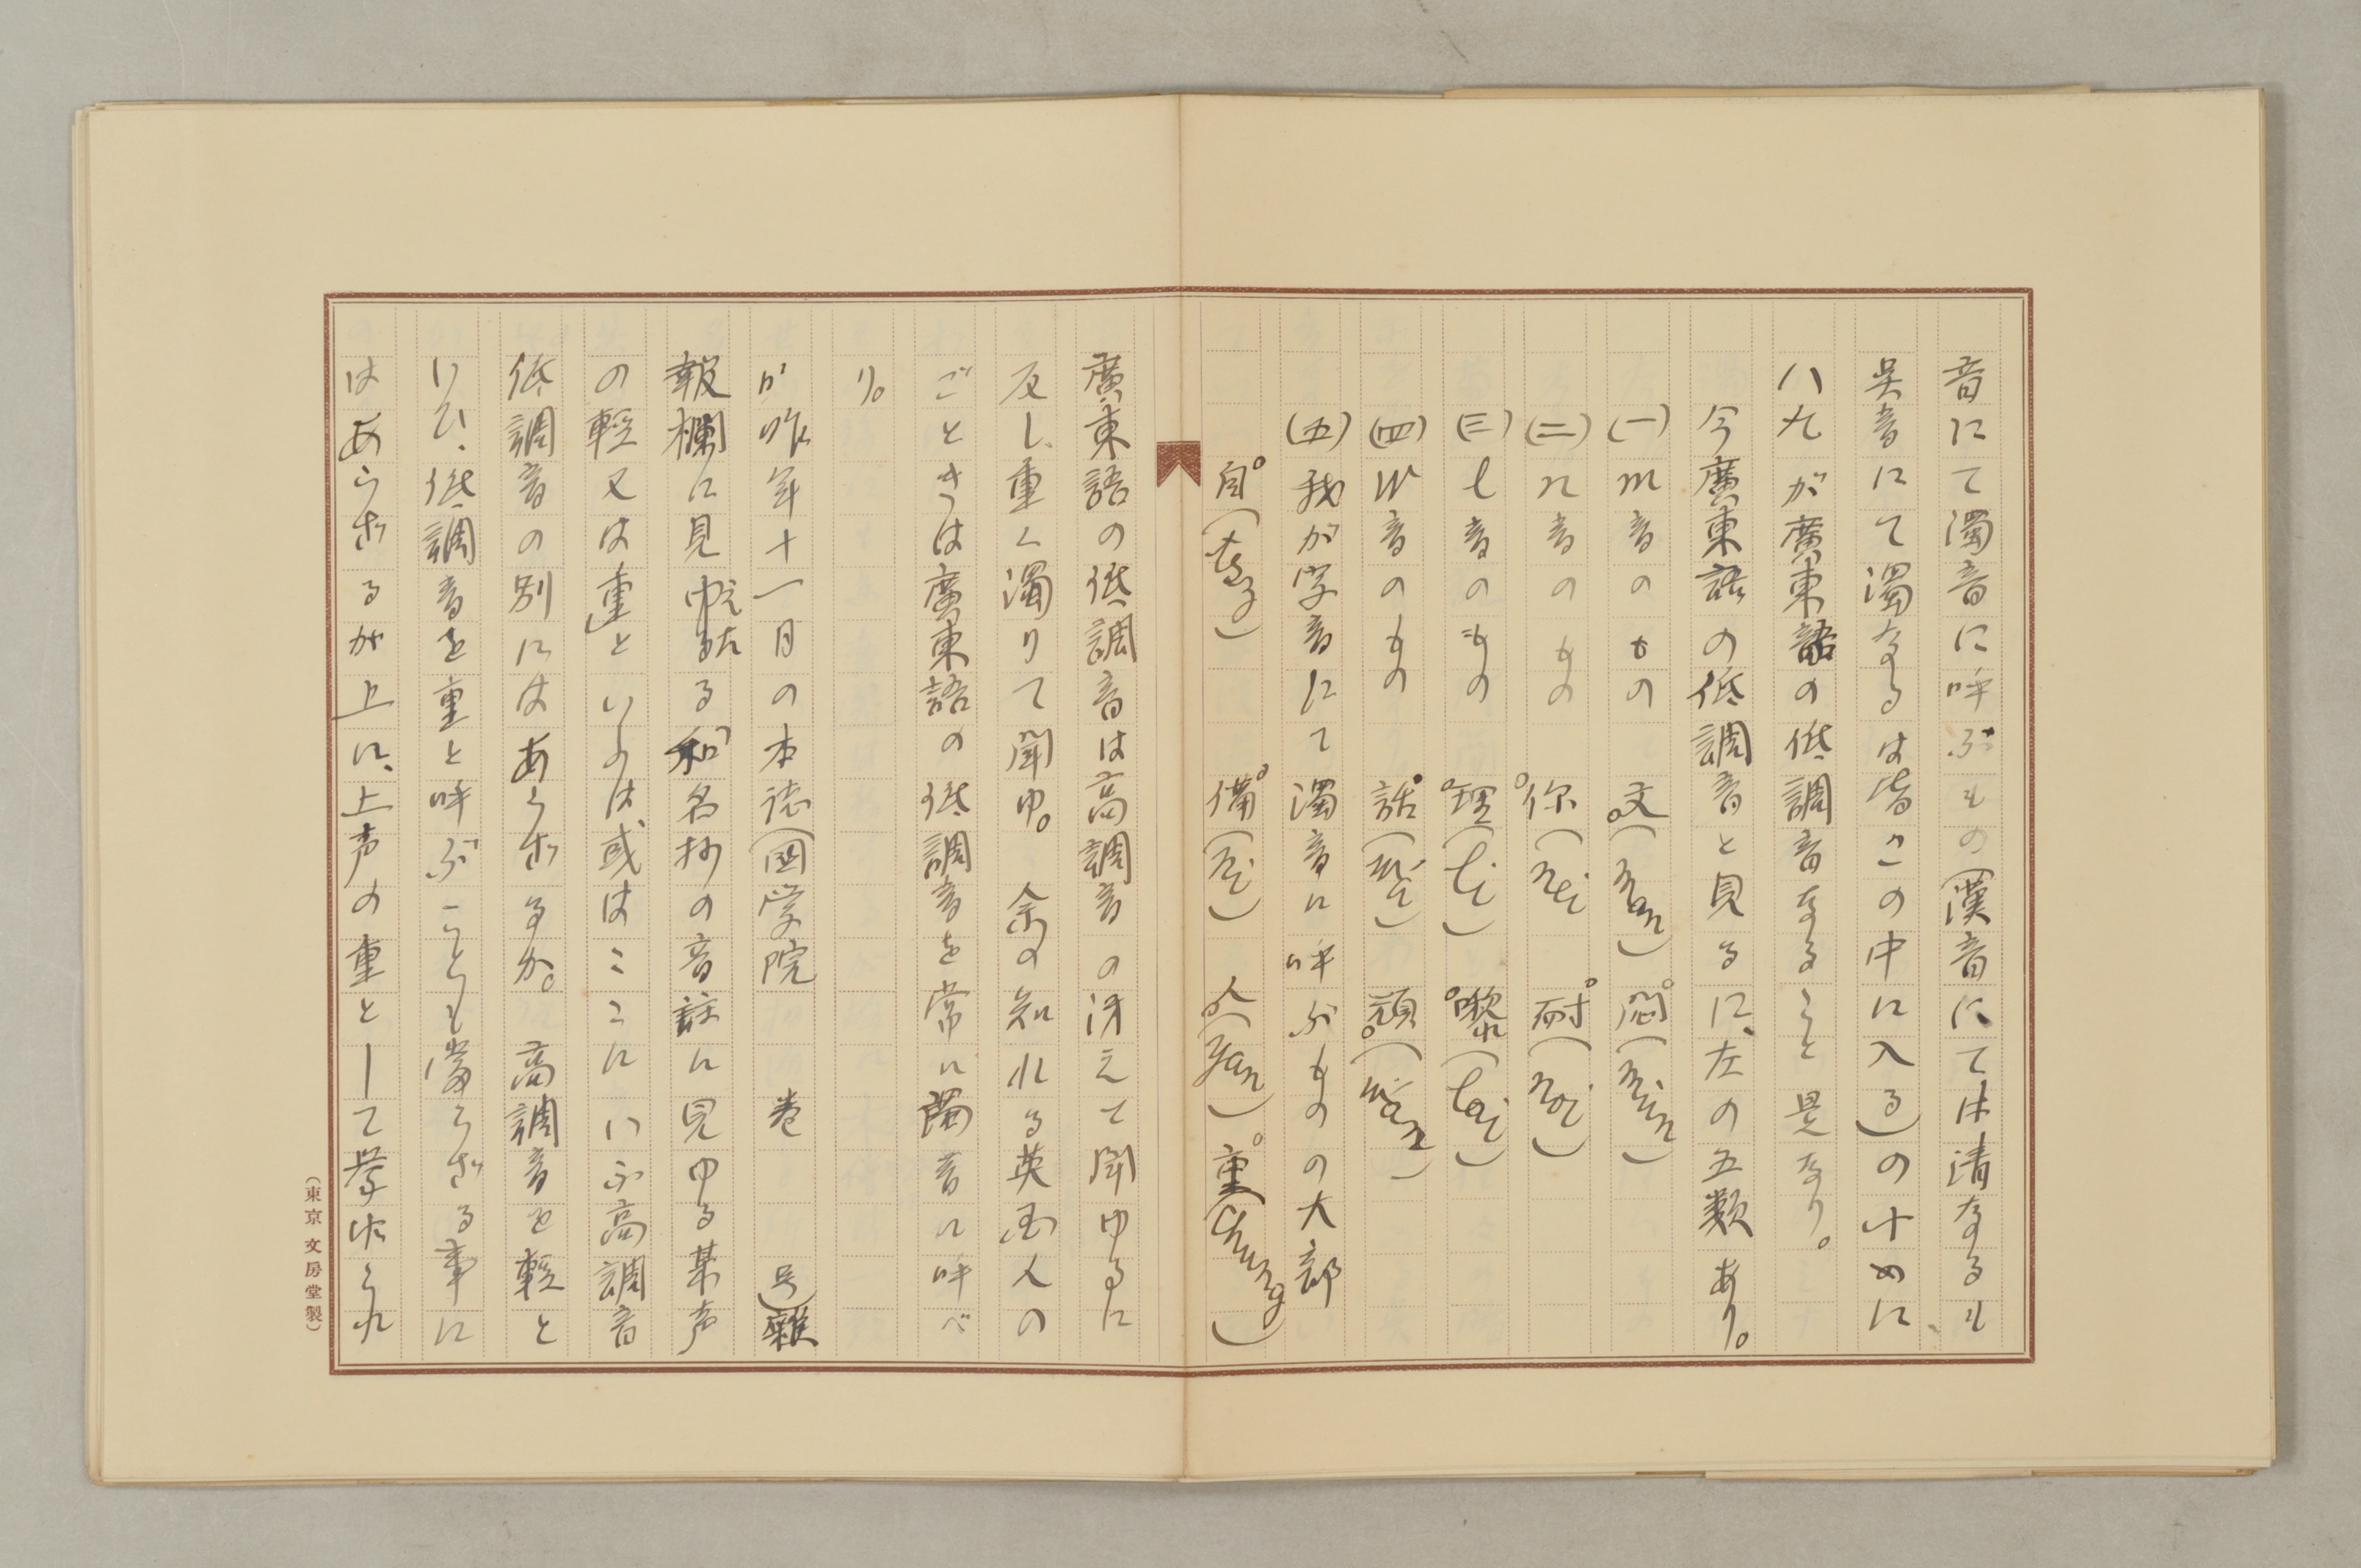 音にて濁音に呼ぶもの(漢音にては清なるも
呉音にて濁なるは皆この中に入る)の十の
八九が廣東語の低調音なること是なり。
今廣東語の低調音と見るに、左の五類あり。
(一) m音のもの 文(man) 悶(mun)
(二) n音のもの 你(nei) 耐(noi)
(三) l音のもの 理(li) 嚟(lai)
(四) w音のもの 話(wa)
(五) 我が字音にて濁音に呼ぶものの大部
自(tsz) 備 人(yan) 重(chung)
廣東語の低調音は高調音の冴えて聞ゆるに
反し、重く濁りて聞ゆ。 余の知れる英国人の
ごときは廣東語の低調音を常に濁音に呼べ
り。
が昨年十一月の本誌(國学院 巻 号)雜
報欄に見えたる和名抄の音註に見ゆる某声
の輕又は重といふのは、或はここにいふ高調音
低調音の別にはあらざるか。 高調音を輕と
いひ、低調音を重と呼ぶことも當らざる事に
はあらざるが上に、上声の重として挙げられ
(東京 文房堂製)